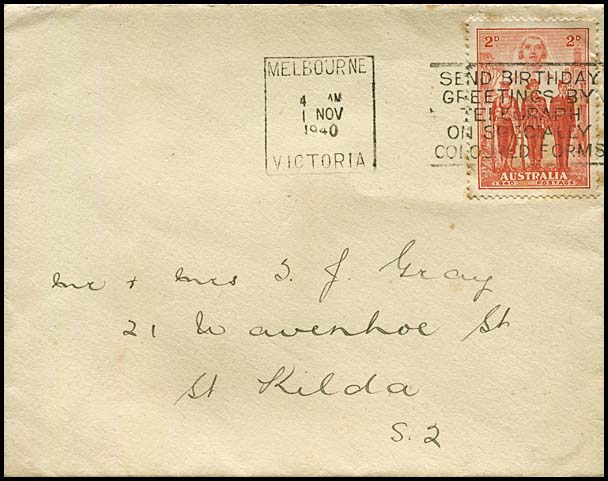 MELBOURNE
4 AM
1 NOV
1940
VICTORIA
2D 2D
SEND BIRTHDAY
GREETINGS BY
TELEGRAPH
ON SPECIALLY
COLOURED FORMS
AUSTRALIA
1940 POSTAGE
Mr + Mrs S. J. Gray
21 Wavenhoe St
St Kilda
S. 2